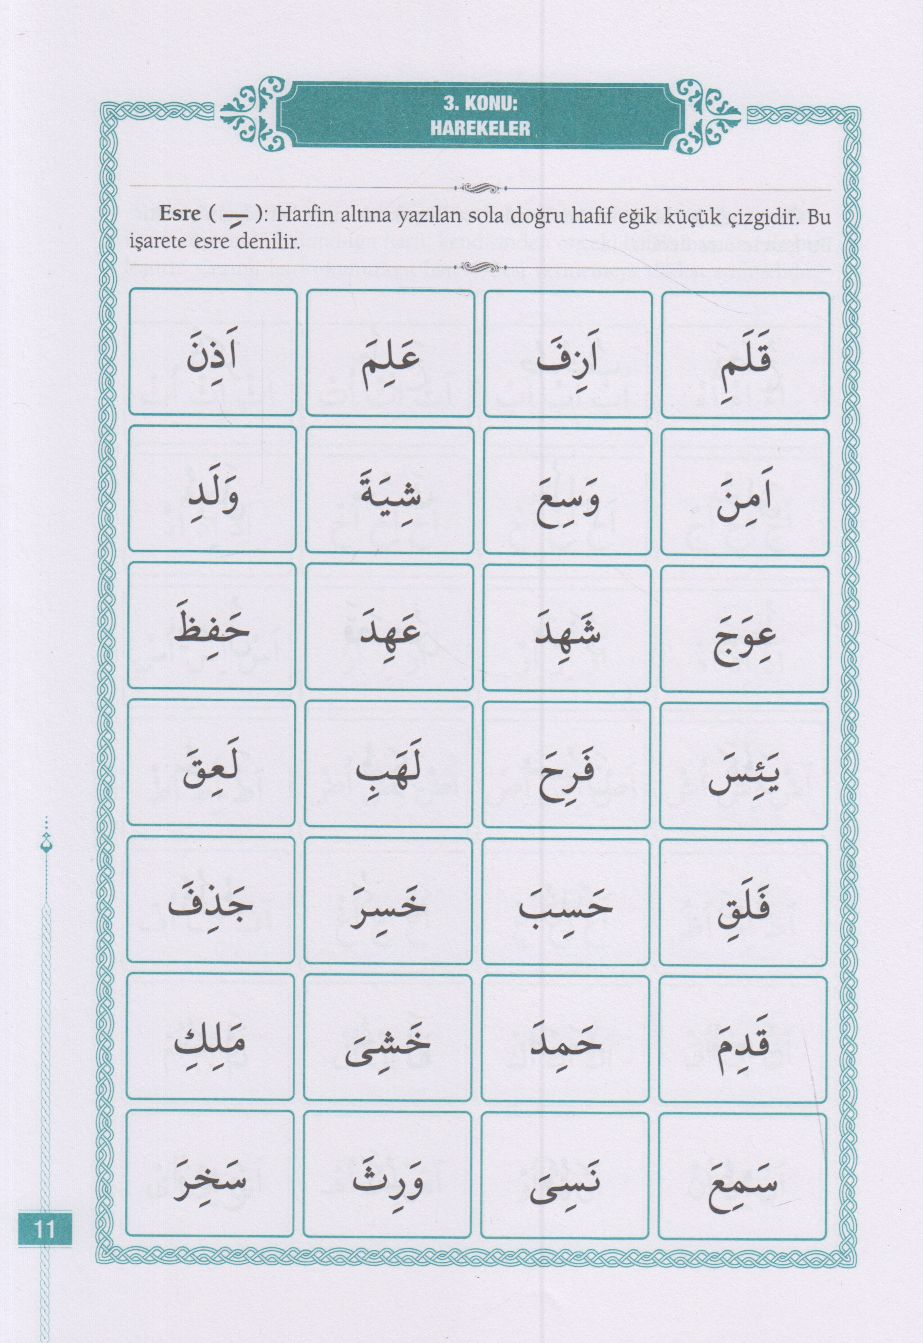 3. KONU:
HAREKELER
Esre ( ـِ ): Harfin altına yazılan sola doğru hafif eğik küçük çizgidir. Bu
işarete esre denilir.
قَلَمِ اَزِفَ عَلِمَ اَذِنَ
اَمِنَ وَسِعَ شِيَةَ وَلَدِ
عِوَجَ شَهِدَ عَهِدَ حَفِظَ
يَئِسَ فَرِحَ لَهَبِ لَعِقَ
فَلَقِ حَسِبَ خَسِرَ جَذِفَ
قَدِمَ حَمِدَ خَشِىَ مَلِكِ
سَمِعَ نَسِىَ وَرِثَ سَخِرَ
11